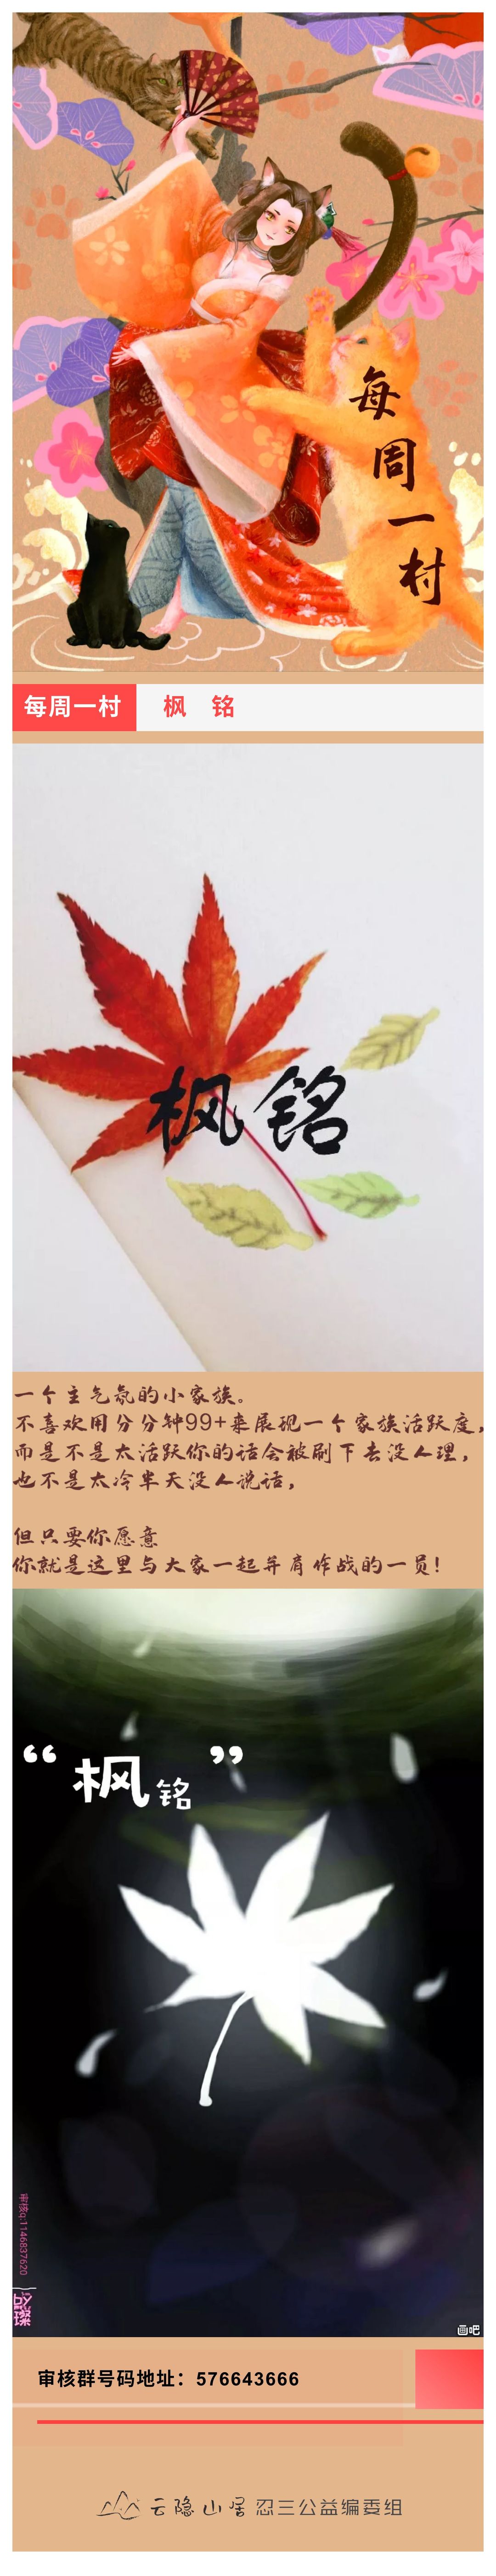 每
周
一
村
每周一村 枫 铭
枫铭
一个主气氛的小家族。
不喜欢用分分钟99+来展现一个家族活跃度,
而是不是太活跃你的话会被刷下去没人理,
也不是太冷半天没人说话,
但只要你愿意
你就是这里与大家一起并肩作战的一员!
“枫铭”
审核q:1146837620
画吧
审核群号码地址：576643666
云隐山居 忍三公益编委组